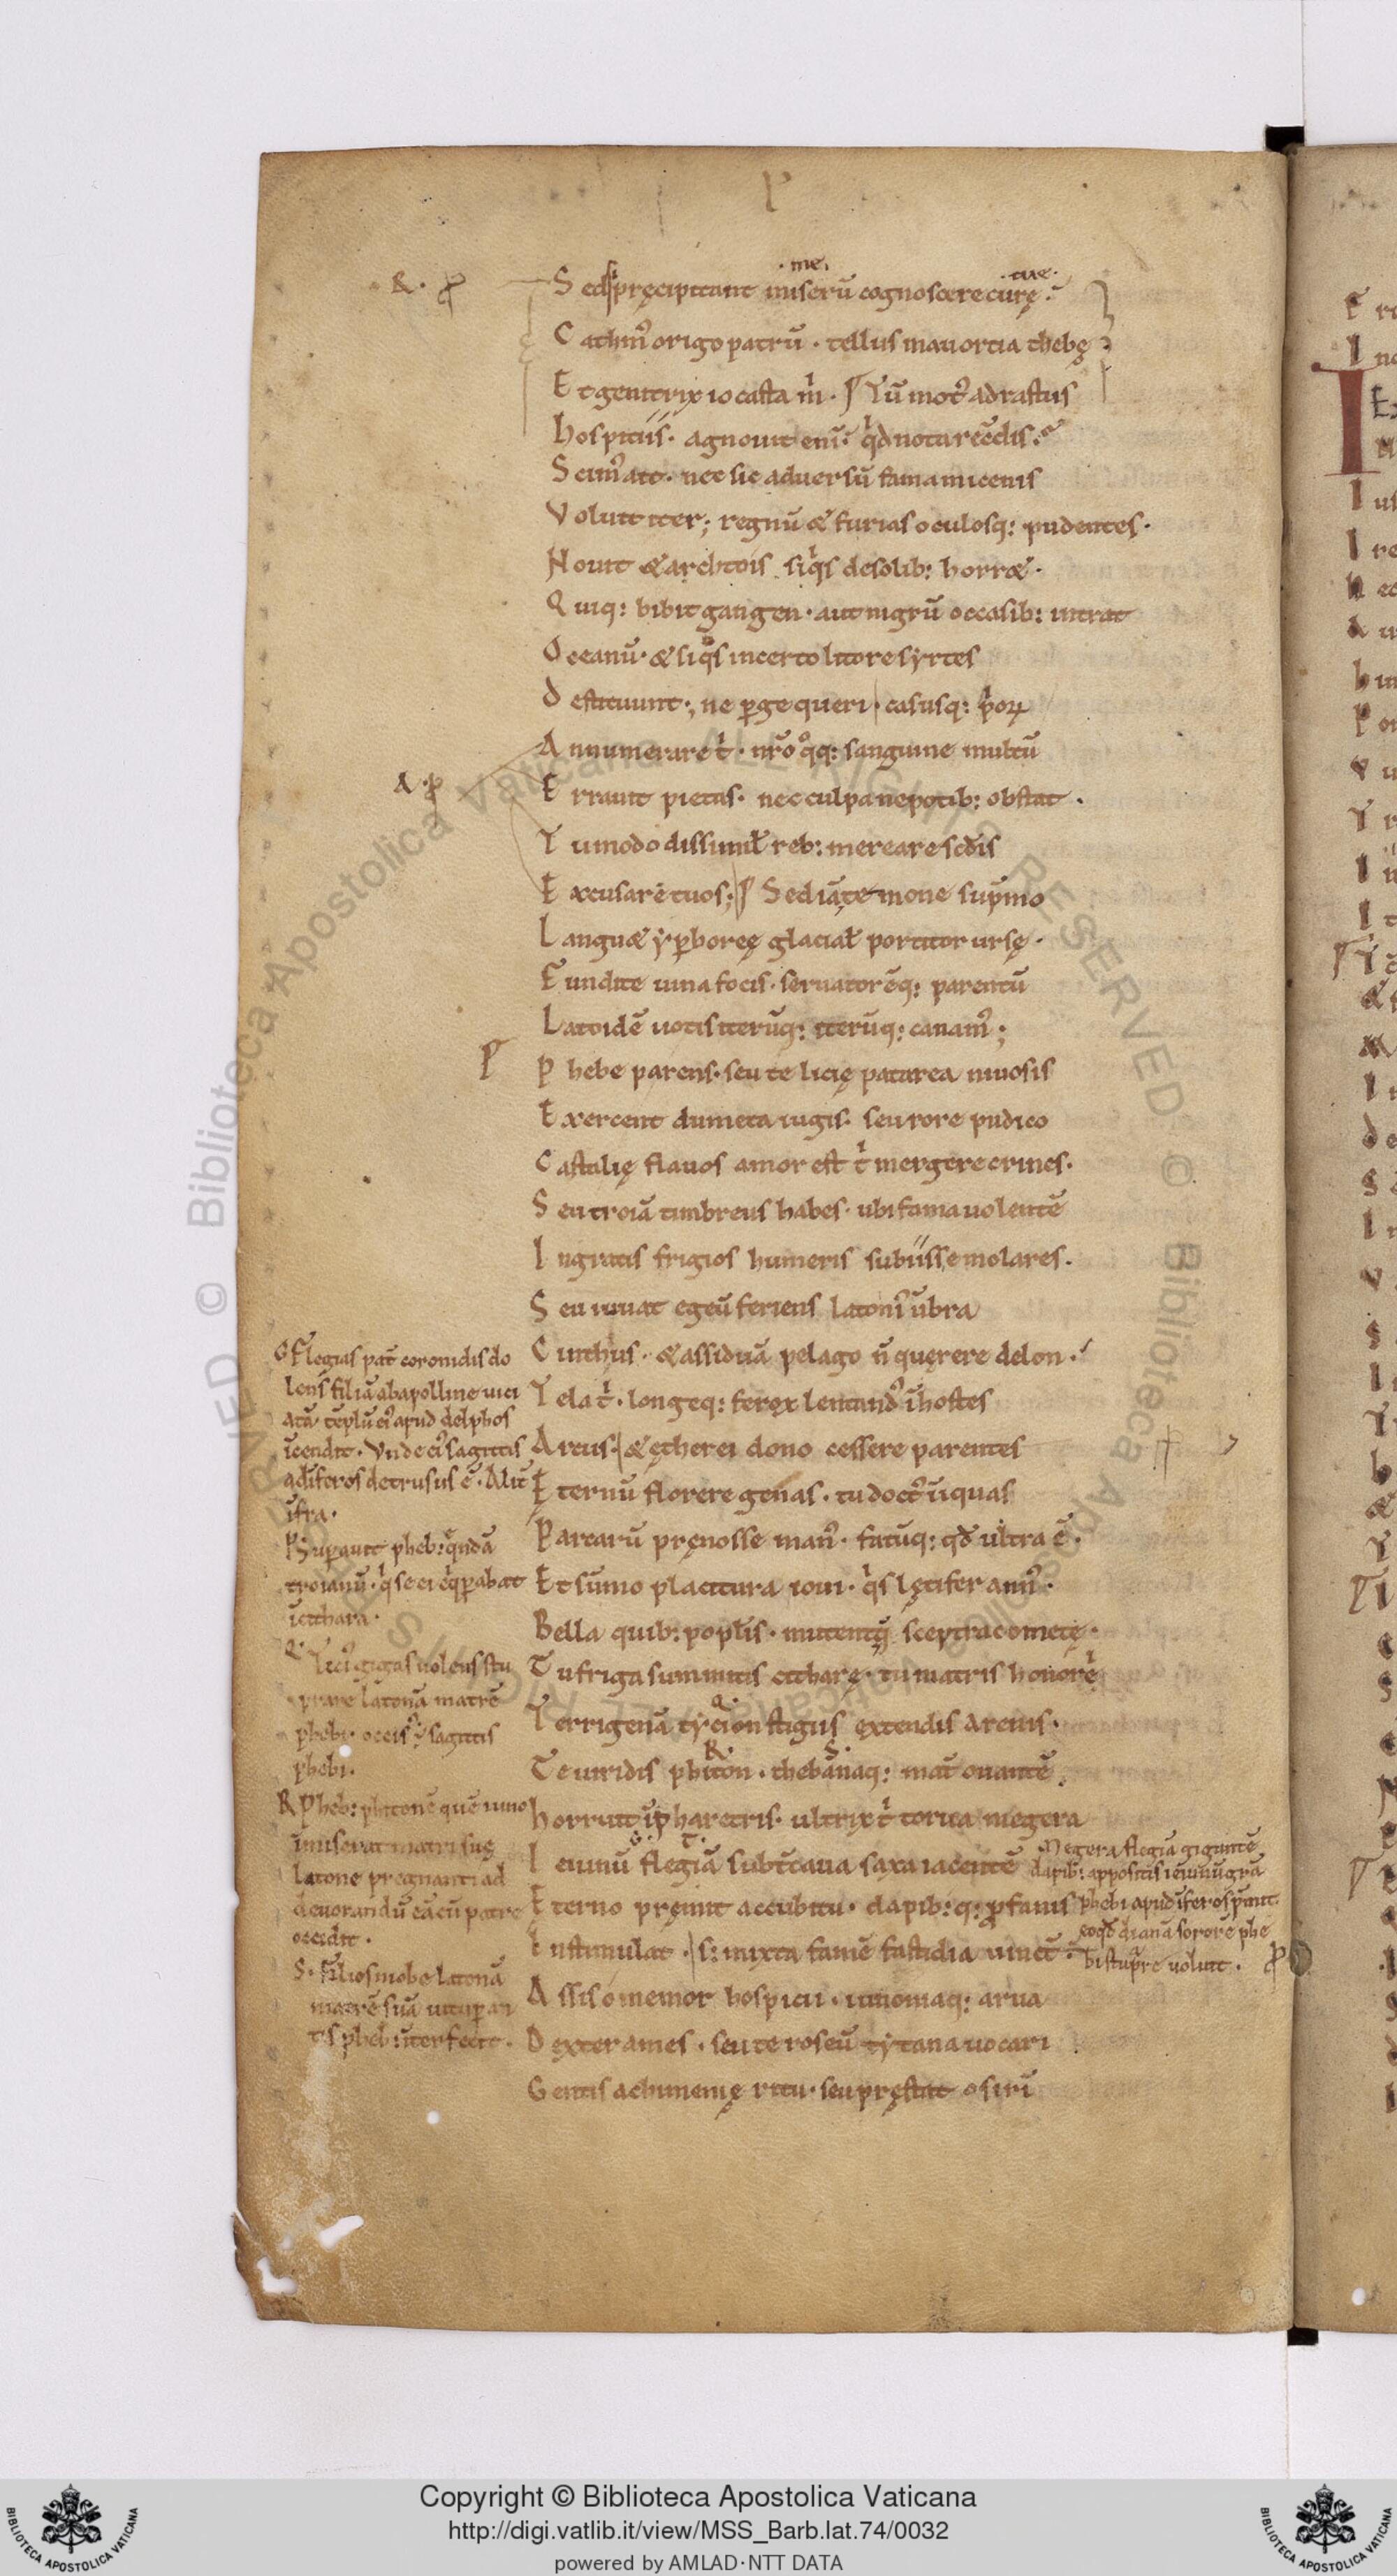 P
· me · · tue ·
Sed si pręcipitant miserū cognoscere curę ·
Cathm᷒ origo patrū · tellus mauortia thebę
Et genitrix iocasta m̍ · Tū mot᷒ adrastus
hospitiis · agnouit enī · q̍d nota recēdis ·
Scim᷒ ait · nec sic aduersū fama micenis
Voluit iter ; regnū & furias oculosq: pudentes ·
Nouit & archtois siq̍s de solib: horr& ·
Quiq: bibit gangen · aut nigrū occasib: intrat
Oceanū · & siq°s incerto litore syrtes
Destituunt ; ne ꝑge queri · casusq: p̍oꝝ
Annumerare t̍ · nr̄o q°q: sanguine multū
Errauit pietas · nec culpa nepotib: obstat ·
Tu modo dissimił reb: mereare scd̄is
Excusare tuos ; Sed iā te mone sup̄mo
Langu& yꝑboreę glaciał portitor ursę ·
Fundite uina focis · seruatorēq: parentū
Latoidē uotis iterūq: iterūq: canam᷒ ;
P
Phebe parens · seu te licię patarea niuosis
Exercent dumeta iugis · seu rore pudico
Castalię flauos amor est t̍ mergere crines ·
Seu troiā timbreus habes · ubi fama uolentē
Ingratis frigios humeris subiisse molares ·
Seu iuuat egeū feriens laton᷒ ūbra
Cinthus · & assiduā pelago n̄ quęrere delon ·
Tela t̍ · longeq: ferox lentand᷒ ī hostes
Arcus · & ętherei dono cessere parentes
Eternū florere genas · tu doct᷒ iniquas
Parcarū pręnosse man᷒ · fatūq: qd̄ ultra ē ·
Et sūmo placitura ioui · q̍s lętifer ann᷒ ·
Bella quib: popłis · mutent q̄ sceptra cometę ·
Tu friga summittis citharę · tu matris honori
Terrigenā tycion stigiis extendis arenis ·
Te uiridis phiton · thebanaq: mat̄ ouantē
horruit ī pharetris · ultrix t̍ torua megera
Ieiunū flegiā subt̄ caua saxa iacentē
Eterno pręmit accubitu · dapib:q: ꝓfanis
Instimulat · s: mixta famē fastidia uinct̄ ·
Assis o memor hospicii · iunoniaq: arua
Dexter ames · seu te roseū tytana uocari
Gentis achimenię ritu · seu pręstat osirī
Flegias pat̄ coronidis do
lens filiā ab apolline uici
atā tēplū ei᷒ apud delphos
īcendit · Vnde ei᷒ sagittis
ad īferos detrusus ē · Alit̄
īfra ·
P Suꝑauit pheb: q̄ndā
troianū · q̍ se ei eq̍ꝑabat
ī cithara ·
Q·
Tici᷒ gigas uolens stu
prare latonā matrē
phebi · occis᷒ ē sagittis
phebi ·
R Pheb: phitonē quē iuno
īmiserat matri suę
Latone pregnanti ad
deuorandū eā cū patre
occidit ·
S · Filios niobe latonā
matrē suā uituꝑan
tis pheb: īterfecit ·
Megera flegiā gigantē
dapib: appositis ieiunū grā
phebi apud īferos p̄mit
eo qd̄ dianā sororē phe
bi stupr̄re uoluit ·
Copyright © Biblioteca Apostolica Vaticana
http://digi.vatlib.it/view/MSS_Barb.lat.74/0032
powered by AMLAD·NTT DATA